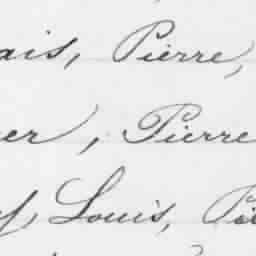 ais, Pierre,
er, Pierre
Louis,